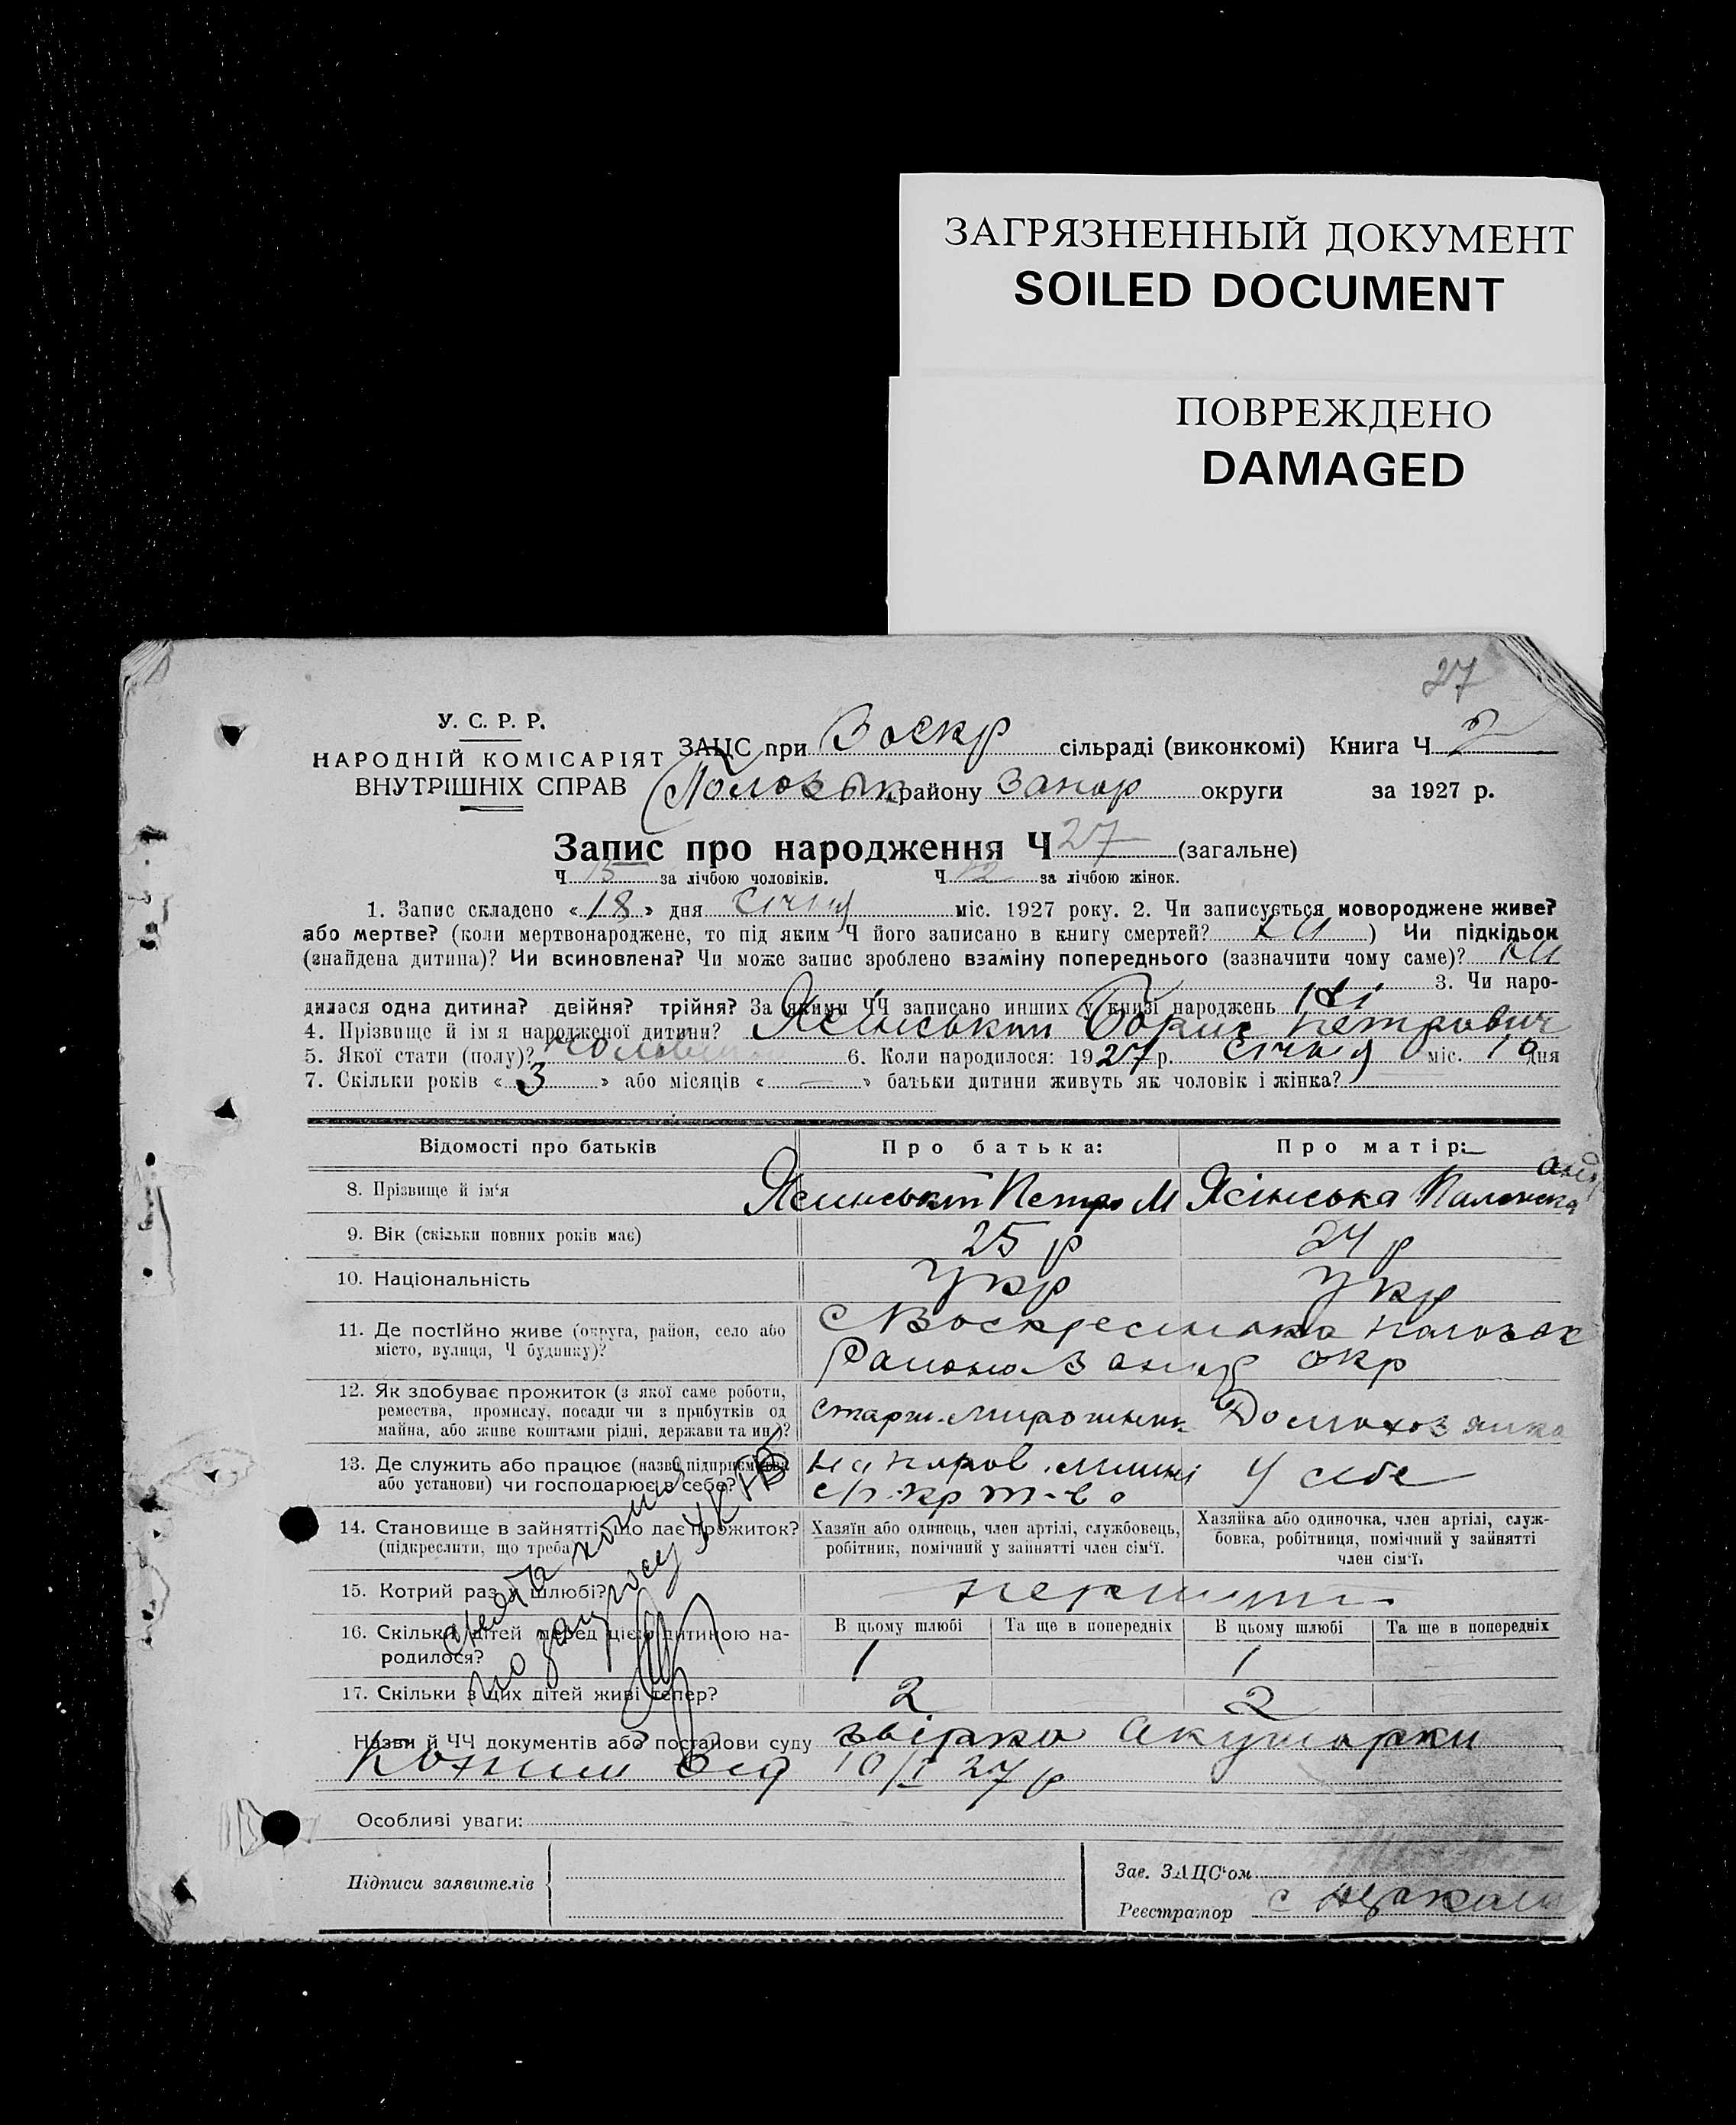 ЗАГРЯЗНЕННЫЙ ДОКУМЕНТ
SOILED DOCUMENT
ПОВРЕЖДЕНО
DAMAGED
27
У. С. Р. Р.
НАРОДНІЙ КОМІСАРІЯТ
ВНУТРІШНІХ СПРАВ
ЗАЦС при Воскр сільраді (виконкомі) Книга Ч 2
району Запор округи за 1927 р.
Запис про народження Ч 27 (загальне)
Ч 15 за лічбою чоловіків. Ч 12 за лічбою жінок.
1. Запис складено «18» дня січня міс. 1927 року. 2. Чи записується новороджене живе?
або мертве? (коли мертвонароджене, то під яким Ч його записано в книгу смертей? ) Чи підкідьок
(знайдена дитина)? Чи всиновлена? Чи може запис зроблено взаміну попереднього (зазначити чому саме)?
3. Чи наро-
дилася одна дитина? двійня? трійня? За якими ЧЧ записано инших у книзі народжень
4. Прізвище й ім я народженої дитини? Ясінський Борис Петрович
5. Якої стати (полу)? 6. Коли народилося: 1927 р. січня міс. 10 дня
7. Скільки років «3» або місяців «—» батьки дитини живуть як чоловік і жінка?
Відомості про батьків Про батька: Про матір:
8. Прізвище й ім‘я Ясинський Петро М Ясінська
9. Вік (скільки повних років має) 25 р 24 р
10. Національність Укр Укр
11. Де постійно живе (округа, район, село або
місто, вулиця, Ч будинку)?
с Воскресенка
Району Запор окр
12. Як здобуває прожиток (з якої саме роботи,
ремества, промислу, посади чи з прибутків од
майна, або живе коштами рідні, держави та ин.)?
старш. мирошник Домохозяйка
13. Де служить або працює (назва підприємства
або установи) чи господарює в себе?
на паров. млині У себе
с/г. кр т-во
14. Становище в зайнятті, що дає прожиток?
(підкреслити, що треба)
Хазяїн або одинець, член артілі, службовець,
робітник, помічний у зайнятті член сім‘ї.
Хазяйка або одиночка, член артілі, служ-
бовка, робітниця, помічний у зайнятті
член сім‘ї.
15. Котрий раз у шлюбі? перший
16. Скільки дітей перед цією дитиною на-
родилося?
В цьому шлюбі Та ще в попередніх В цьому шлюбі Та ще в попередніх
1 1
17. Скільки з цих дітей живі тепер? 2 2
по запросу УКГБ
Назви й ЧЧ документів або постанови суду звірка акушорки
від 10/I 27 р
Особливі уваги:
Підписи заявителів
Зав. ЗАЦС‘ом
Реєстратор